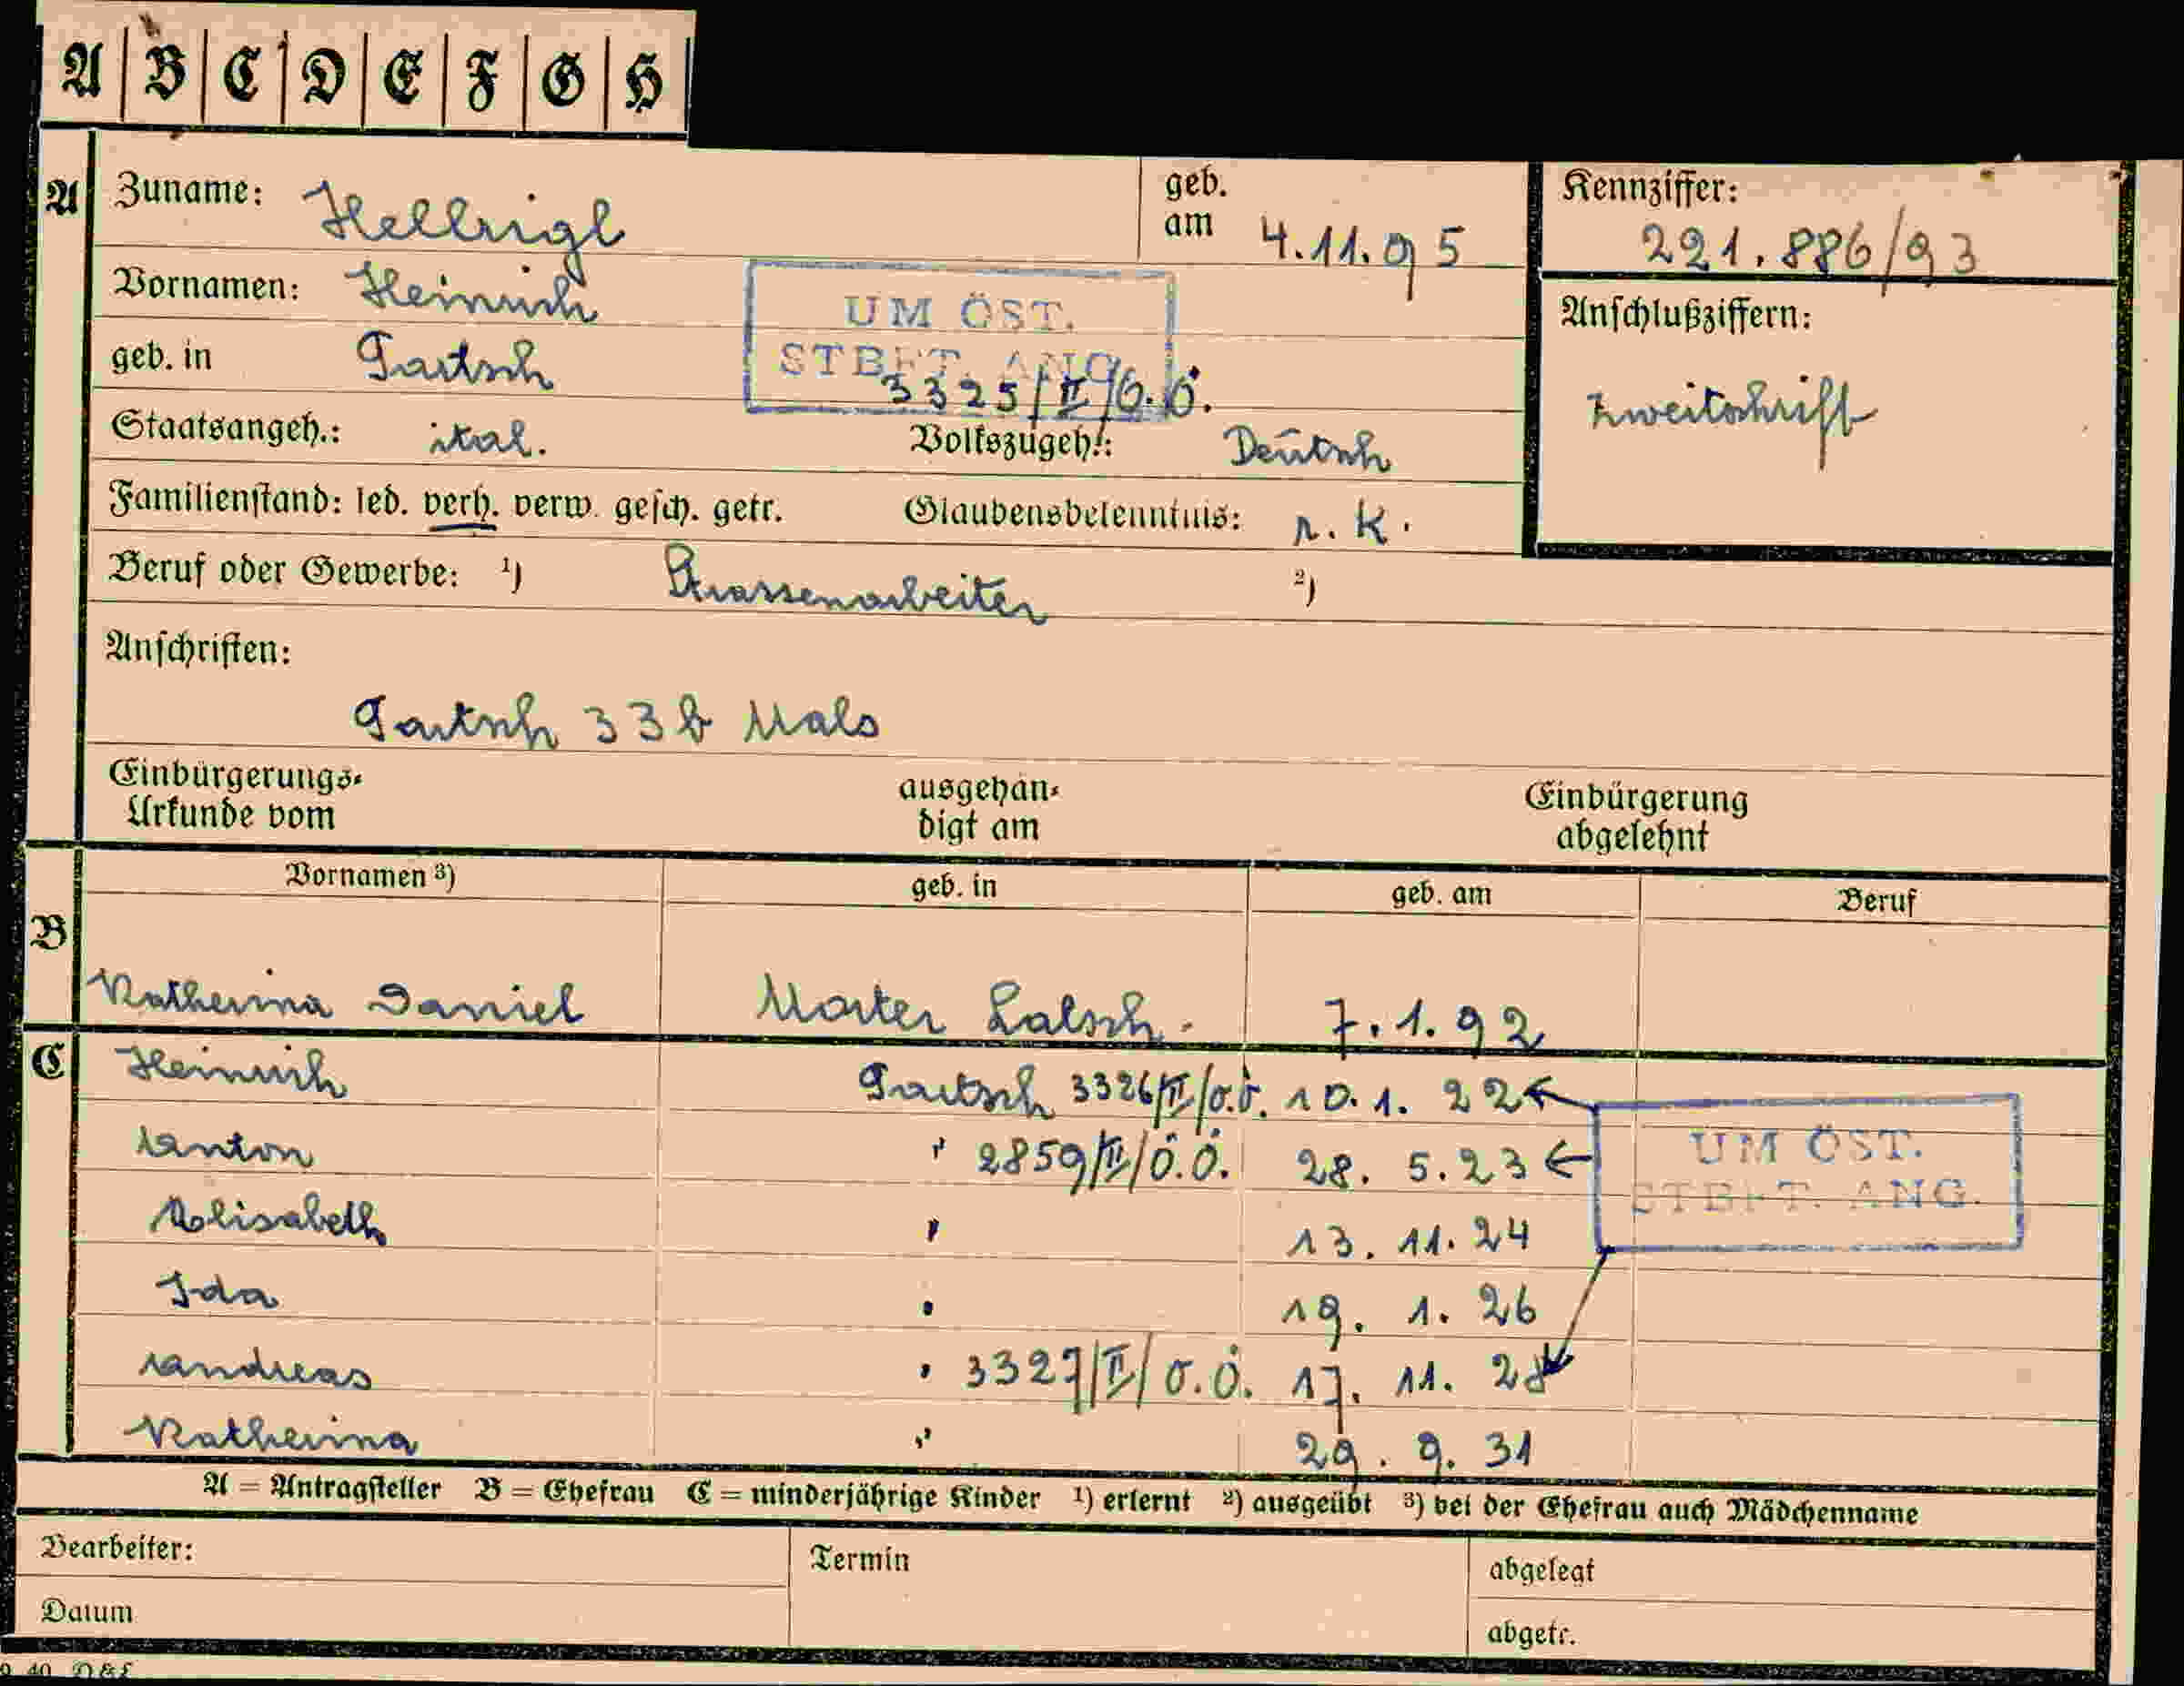 A B C D E F G H
A Zuname: Hellrigl geb. am 4.11.95 Kennziffer: 221.886/93
Vornamen: Heinrich UM ÖST. Anschlußziffern:
geb. in Tartsch STBFT. ANG. 3325/II/Ö.Ö. Zweitschrift
Staatsangeh.: ital. Volkszugeh.: Deutsch
Familienstand: led. verh. verw. gesch. getr. Glaubensbekenntnis: r. k.
Beruf oder Gewerbe: ¹) Strassenarbeiter ²)
Anschriften:
Tartsch 33b Mals
Einbürgerungs- ausgehän- Einbürgerung
Urkunde vom digt am abgelehnt
Vornamen ³) geb. in geb. am Beruf
B
Katherina Daniel Morter Latsch. 7.1.92
C Heinrich Tartsch 3326/II/Ö.Ö. 10.1. 22
Anton " 2859/II/Ö.Ö. 28. 5.23 UM ÖST.
STBFT. ANG.
Elisabeth " 13. 11. 24
Ida " 19. 1. 26
Andreas " 3327/II/Ö.Ö. 17. 11. 28
Katherina " 29. 9. 31
A = Antragsteller B = Ehefrau C = minderjährige Kinder ¹) erlernt ²) ausgeübt ³) bei der Ehefrau auch Mädchenname
Bearbeiter: Termin abgelegt
Datum abgetr.